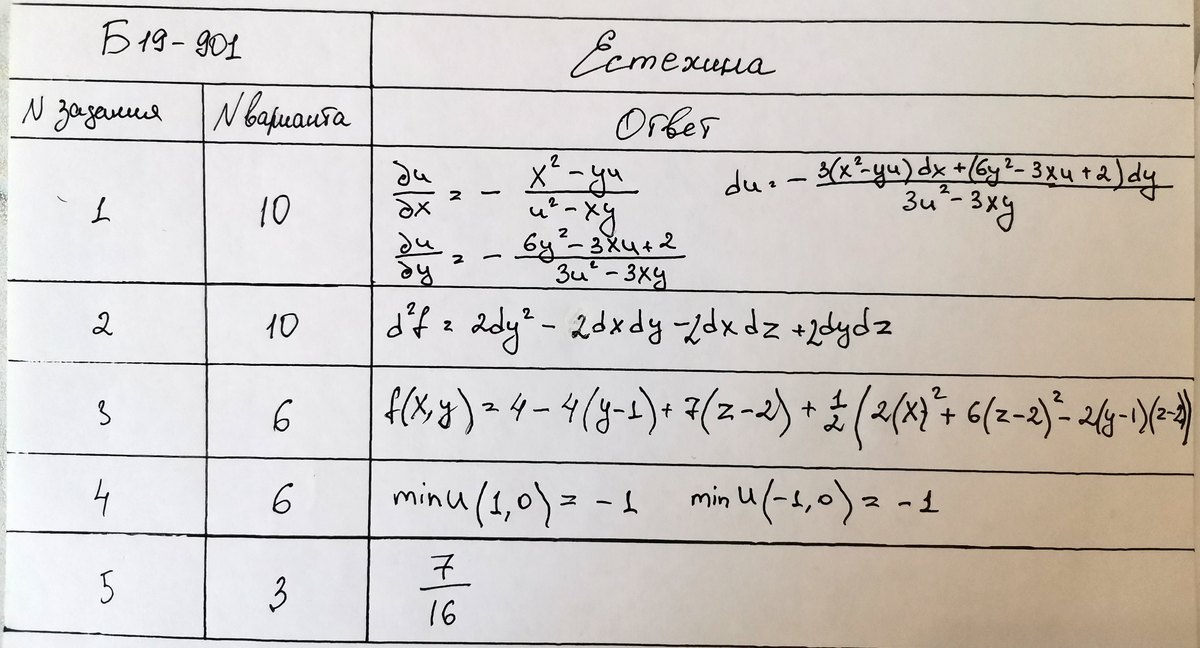 Б19-901 Естехина
N задания N варианта Ответ
1 10 ∂u/∂x = - (x² - yu)/(u² - xy) du = - (3(x² - yu)dx + (6y² - 3xu + 2)dy)/(3u² - 3xy)
∂u/∂y = - (6y² - 3xu + 2)/(3u² - 3xy)
2 10 d²f = 2dy² - 2dxdy - 2dxdz + 2dydz
3 6 f(x,y) = 4 - 4(y-1) + 7(z-2) + 1/2 (2(x)² + 6(z-2)² - 2(y-1)(z-2))
4 6 min u(1,0) = -1 min u(-1,0) = -1
5 3 7/16